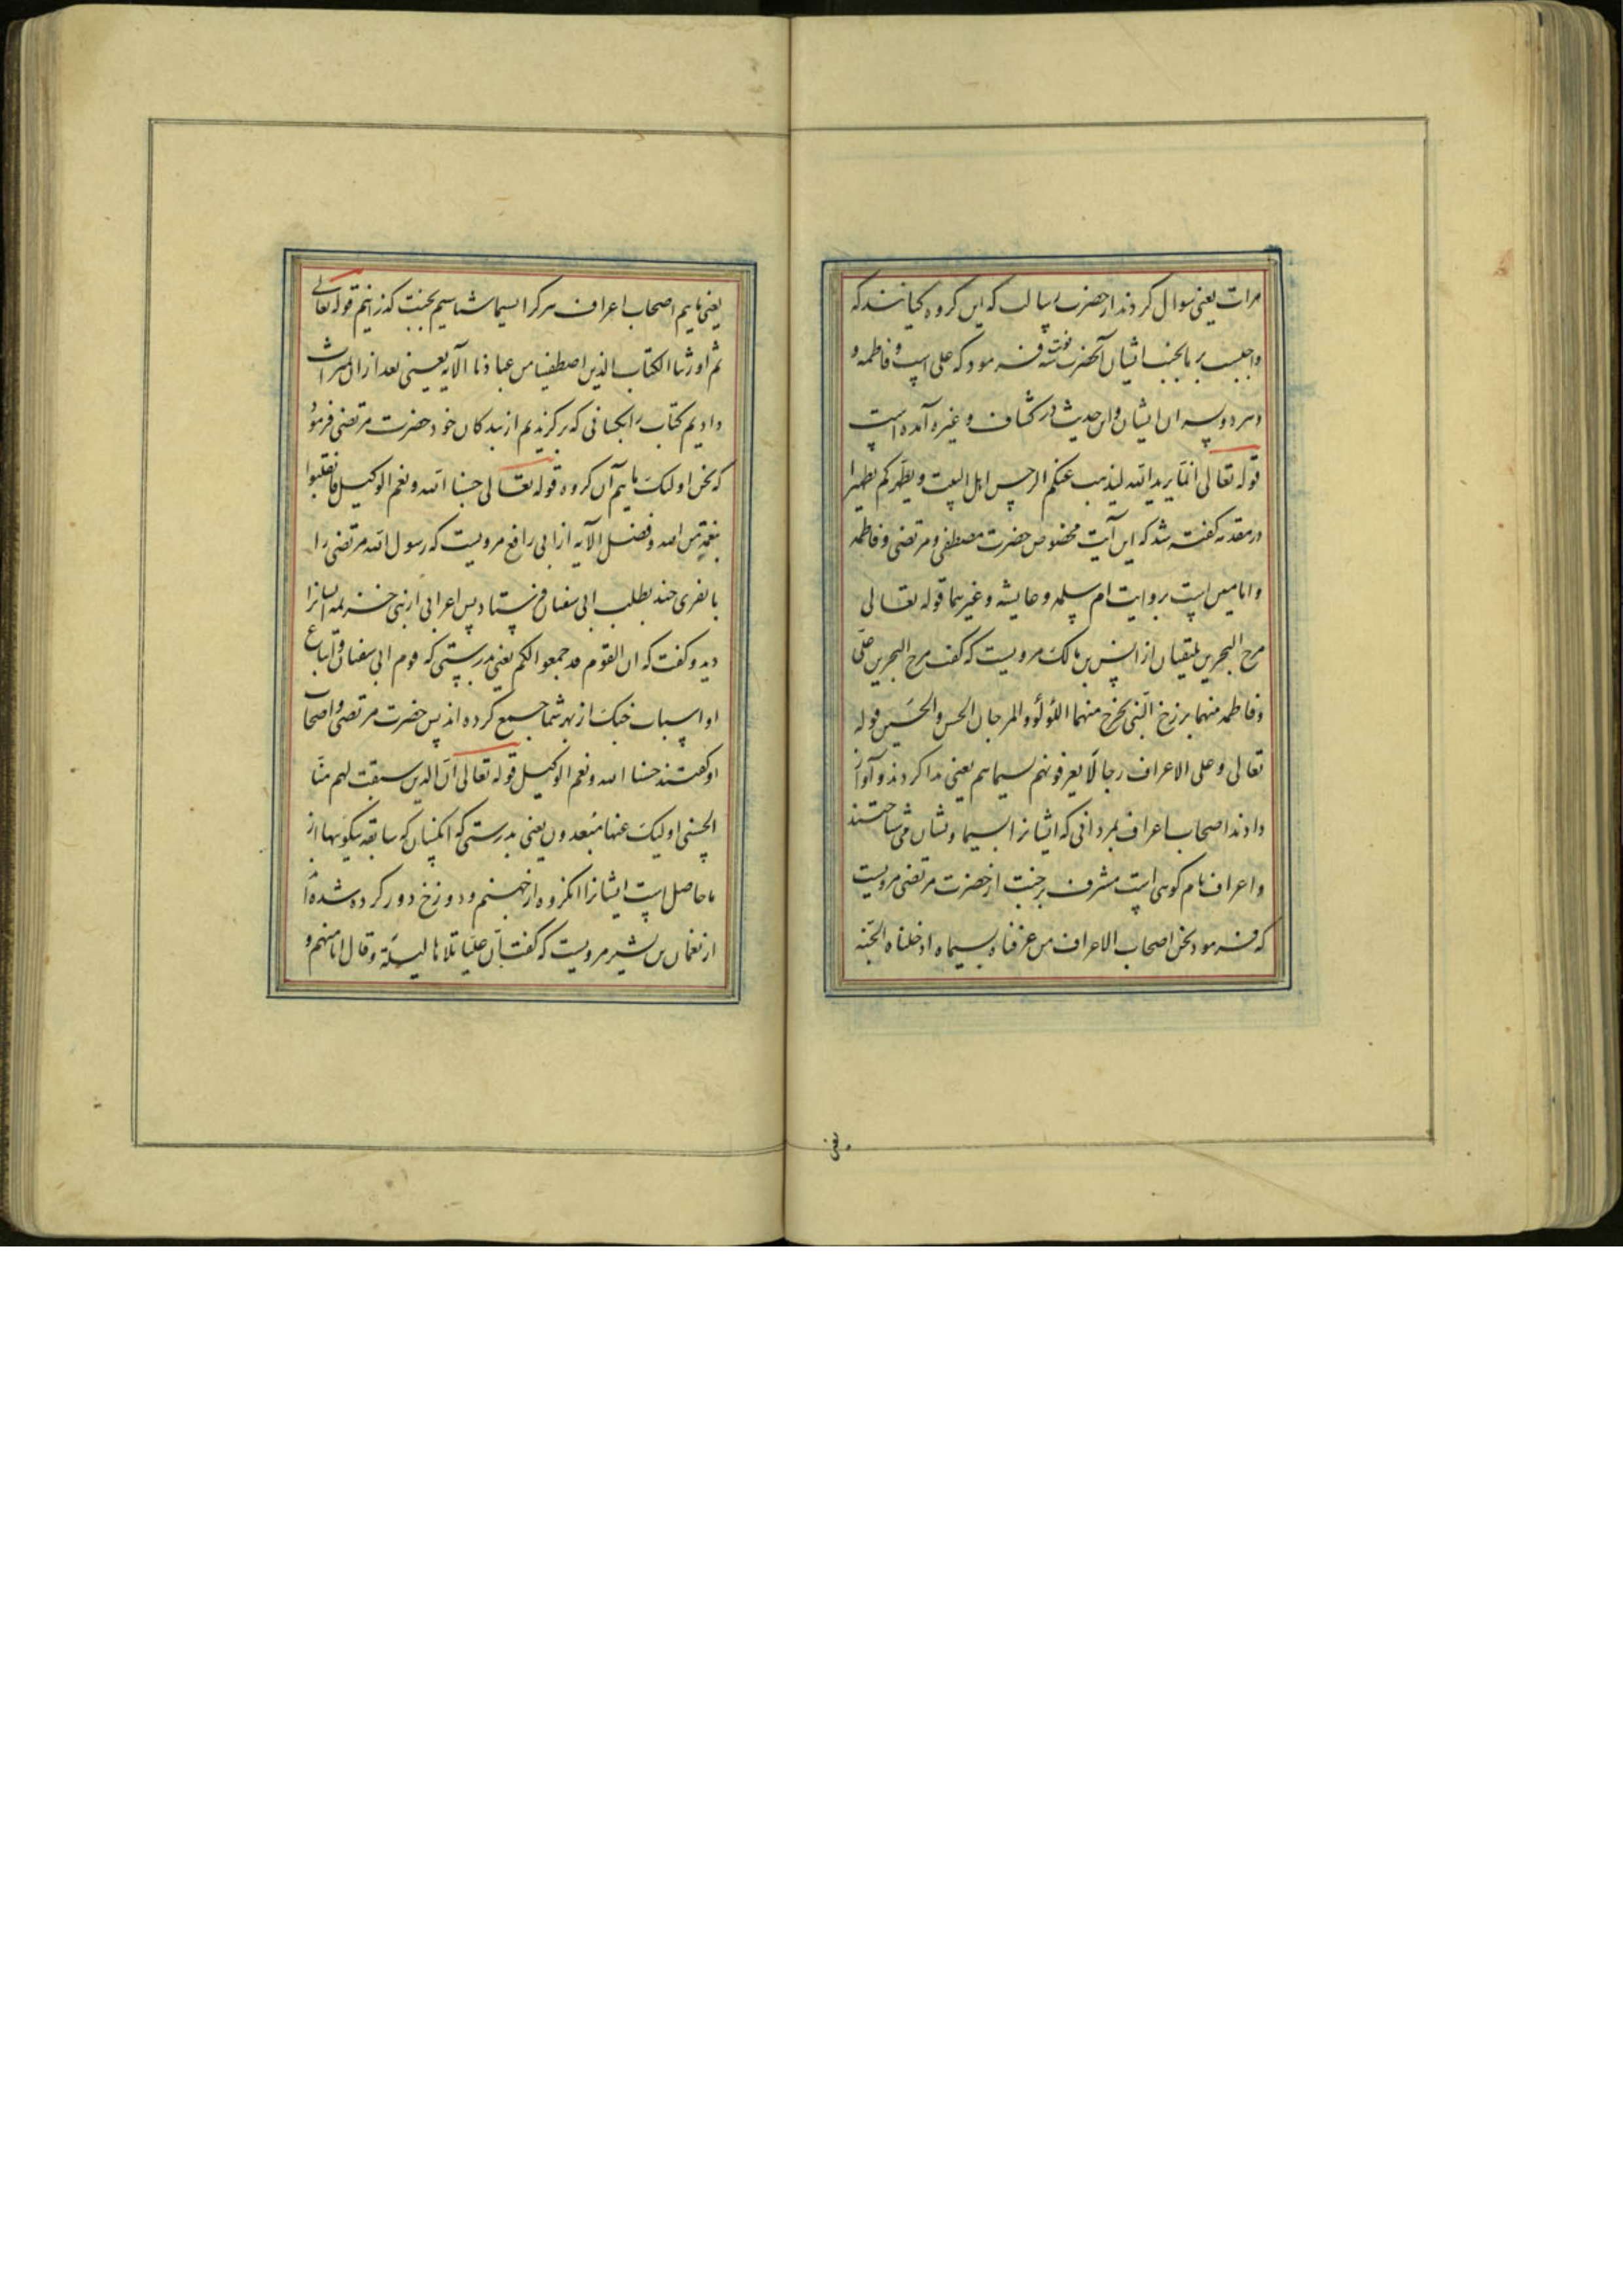 مرات یعنی سوال کردند از حضرت رسالت که این کروه کیانند که
واجبست بر ما محبت ایشان آنحضرت سه نوبت فرمود که علی است و فاطمه و
هر دو پسران ایشان و این حدیث در کشاف و غیره آمده است
قوله تعالی انما یرید الله لیذهب عنکم الرجس اهل البیت و یطهرکم تطهیرا
در مقدمه کفته شد که این آیت مخصوص حضرت مصطفی و مرتضی و فاطمه
و امامین است بروایت ام سلمه و عایشه و غیرهما قوله تعالی
مرج البحرین یلتقیان از انس بن مالک مرویست که کفت مرج البحرین علی
و فاطمه منهما برزخ النبی یخرج منهما اللؤلؤ و المرجان الحسن و الحسین قوله
تعالی و علی الاعراف رجالا یعرفونهم بسیماهم یعنی ندا کردند و آواز
دادند اصحاب اعراف بمردانی که ایشانرا بسیما و نشان می شناختند
و اعراف نام کوهی است مشرف بر جنت از حضرت مرتضی مرویست
که فرمود نحن اصحاب الاعراف من عرفناه بسیماه ادخلناه الجنة
یعنی
یعنی مایم اصحاب اعراف هر کرا بسیما شناسیم بجنت کذرانیم قوله تعالی
ثم اورثنا الکتاب الذین اصطفینا من عبادنا الآیه یعنی بعد از ان میراث
دادیم کتاب را بکسانی که برکزیدیم از بندکان خود حضرت مرتضی فرمود
که نحن اولئک مایم آن کروه قوله تعالی حسبنا الله و نعم الوکیل فانقلبوا
بنعمة من الله و فضل الآیه از ابی رافع مرویست که رسول الله مرتضی را
با نفری چند بطلب ابی سفیان فرستاد پس اعرابی از بنی خزیمه ایشانرا
دید و کفت که ان القوم قد جمعوا لکم یعنی بدرستی که قوم ابی سفیان و اتباع
او اسباب جنک از بهر شما جمع کرده اند پس حضرت مرتضی و اصحاب
او کفتند حسبنا الله و نعم الوکیل قوله تعالی ان الذین سبقت لهم منا
الحسنی اولیک عنها مبعدون یعنی بدرستی که انکسان که سابقه نیکوییها از
ما حاصل است ایشانرا انکروه از جهنم و دوزخ دور کرده شده اند
از نعمان بن بشیر مرویست که کفت بان علیا تلاها لیلة و قال انا منهم و